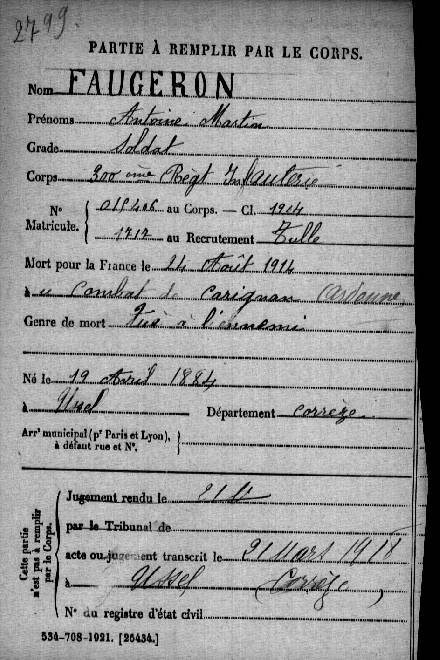 2799.
PARTIE À REMPLIR PAR LE CORPS.
Nom FAUGERON
Prénoms Antoine Martin
Grade Soldat
Corps 300 ème Régt Infanterie
N° Matricule. { 015406 au Corps. — Cl. 1904
1717 au Recrutement Tulle
Mort pour la France le 24 Août 1914
à u Combat de Carignan (Ardennes
Genre de mort Tué à l'ennemi
Né le 19 Avril 1884
à Ussel Département Corrèze
Arrt municipal (pr Paris et Lyon), à défaut rue et N°.
Cette partie n'est pas à remplir par le Corps.
Jugement rendu le
par le Tribunal de
acte ou jugement transcrit le 21 Mars 1918
à Ussel (Corrèze)
N° du registre d'état civil
534-708-1921. [26434.]